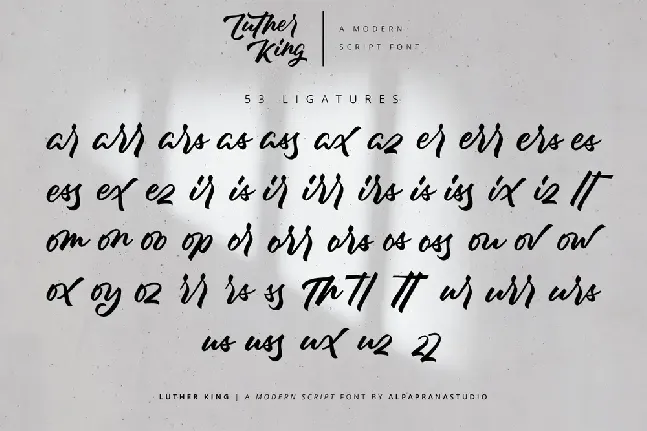 Luther
King
A MODERN
SCRIPT FONT
53 LIGATURES
ar arr ars as ass ax az er err ers es
ess ex ez ir is ir irr irs is iss ix iz lt
om on oo op or orr ors os oss ou ov ow
ox oy oz rr rs ss Th Tl Tt ur urr urs
us uss ux uz zz
LUTHER KING | A MODERN SCRIPT FONT BY ALPAPRANASTUDIO